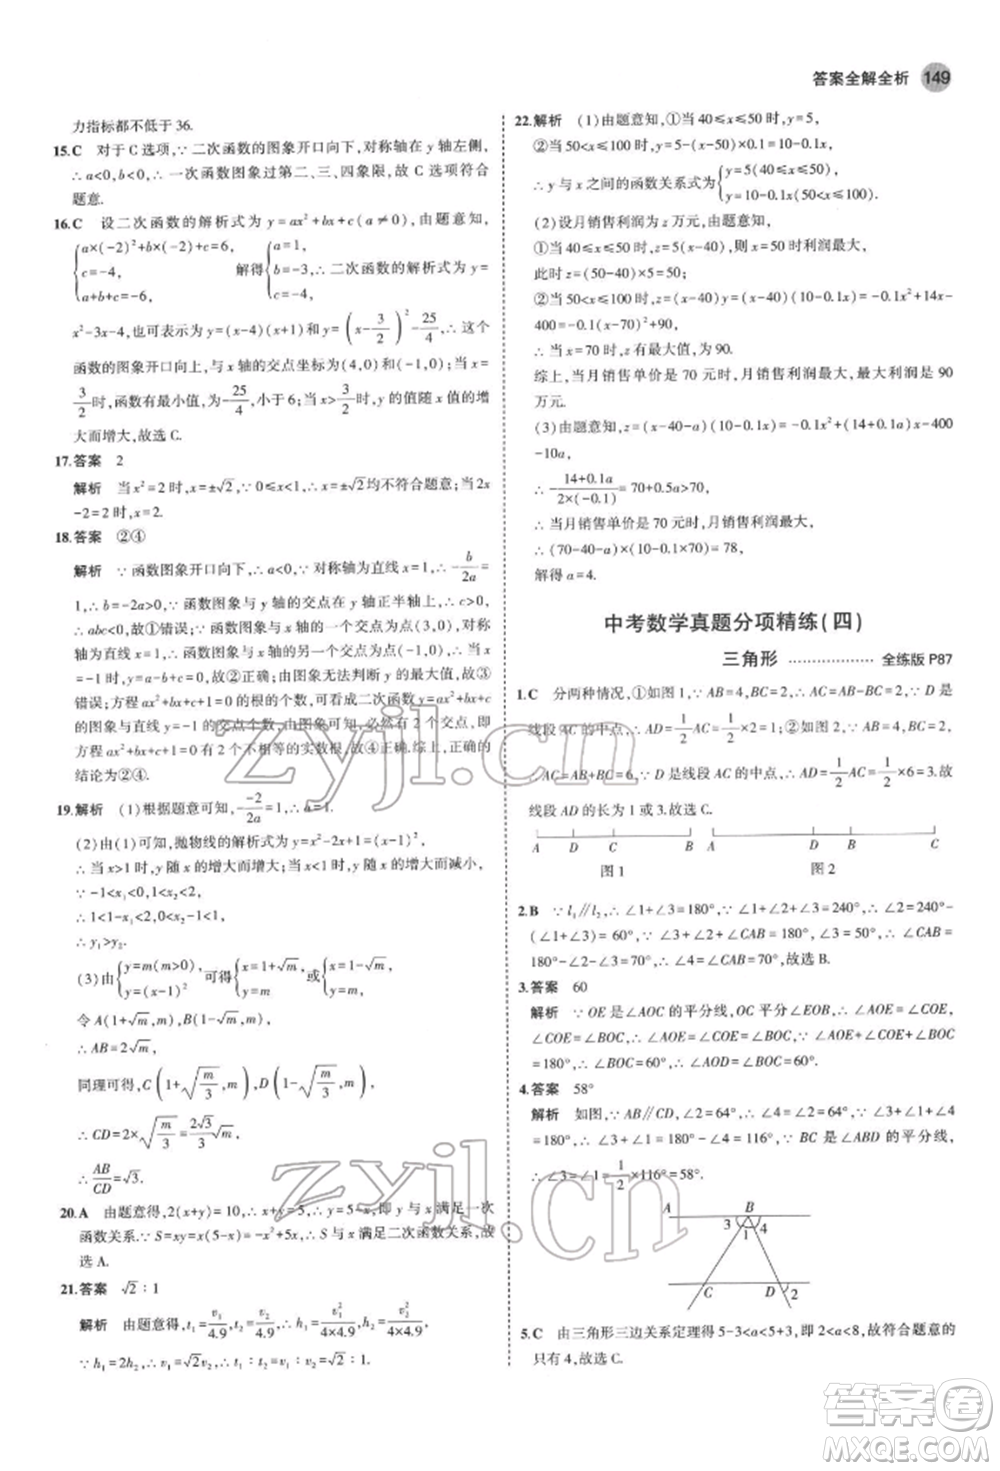 答案全解全析 149
力指标都不低于 36.
15.C 对于 C 选项,∵ 二次函数的图象开口向下,对称轴在 y 轴左侧,
∴ a<0,b<0,∴ 一次函数图象过第二、三、四象限,故 C 选项符合
题意.
16.C 设二次函数的解析式为 y=ax²+bx+c(a≠0),由题意知,
{a×(-2)²+b×(-2)+c=6, c=-4, a+b+c=-6, 解得{a=1, b=-3, c=-4, ∴ 二次函数的解析式为 y=
x²-3x-4,也可表示为 y=(x-4)(x+1)和 y=(x-3/2)²-25/4,∴ 这个
函数的图象开口向上,与 x 轴的交点坐标为(4,0)和(-1,0);当 x=
3/2时,函数有最小值,为-25/4,小于 6;当 x>3/2时,y 的值随 x 值的增
大而增大,故选 C.
17.答案 2
解析 当 x²=2 时,x=±√2,∵ 0≤x<1,∴ x=±√2均不符合题意;当 2x
-2=2 时,x=2.
18.答案 ②④
解析 ∵ 函数图象开口向下,∴ a<0,∵ 对称轴为直线 x=1,∴ -b/2a=
1,∴ b=-2a>0,∵ 函数图象与 y 轴的交点在 y 轴正半轴,∴ c>0,
∴ abc<0,故①错误;∵ 函数图象与 x 轴有两个交点,∴ b²-4ac>0,
∴ b²>4ac,故②正确;由图象无法判断 4a+2b+c 与 0 的关系,故③
错误;方程 ax²+bx+c+1=0 可化为 ax²+bx+c=-1,由 y=ax²+bx+c
的图象与直线 y=-1 的交点个数,可知必然有 2 个不同的交点,即
方程 ax²+bx+c+1=0 有 2 个不相等的实数根,故④正确.综上,正确的
结论为②④.
19.解析 (1)根据题意可知,- -2/2a=1,∴ a=1.
(2)由(1)可知,抛物线的解析式为 y=x²-2x+1=(x-1)²,
∴ 当 x>1 时,y 随 x 的增大而增大;当 x<1 时,y 随 x 的增大而减小,
∵ -1<x₁<0,1<x₂<2,
∴ 1<1-x₁<2,0<x₂-1<1,
∴ y₁>y₂.
(3)由{y=m(m>0), y=(x-1)² 得{x=1+√m, y=m 或{x=1-√m, y=m,
令 A(1+√m,m),B(1-√m,m),
∴ AB=2√m,
同理可得,C(1+√(m/3),m),D(1-√(m/3),m),
∴ CD=2×√(m/3)=2√3/3 √m,
∴ AB/CD=√3.
20.A 由题意得,2(x+y)=10,∴ x+y=5,∴ y=5-x,即 y 与 x 满足一次
函数关系.∵ S=xy=x(5-x)=-x²+5x,∴ S 与 x 满足二次函数关系,故
选 A.
21.答案 √2∶1
解析 由题意得,t₁=v₁/4.9,t₂=v₂/4.9,h₁=v₁²/(4×4.9),h₂=v₂²/(4×4.9),
∵ h₁=2h₂,∴ v₁=√2v₂,∴ t₁∶t₂=v₁∶v₂=√2∶1.
22.解析 (1)由题意知,①当 40≤x≤50 时,y=5,
②当 50<x≤100 时,y=5-(x-50)×0.1=10-0.1x,
∴ y 与 x 之间的函数关系式为{y=5(40≤x≤50), y=10-0.1x(50<x≤100).
(2)设月销售利润为 z 万元,由题意知,
①当 40≤x≤50 时,z=(x-40)×5,则 x=50 时利润最大,
此时 z=(50-40)×5=50;
②当 50<x≤100 时,z=(x-40)y=(x-40)(10-0.1x)=-0.1x²+14x-
400=-0.1(x-70)²+90,
∴ 当 x=70 时,z 有最大值,为 90.
综上,当月销售单价是 70 元时,月销售利润最大,最大利润是 90
万元.
(3)由题意知,利润为(x-40-a)(10-0.1x)=-0.1x²+(14+0.1a)x
-400-10a,
∴ -(14+0.1a)/(2×(-0.1))=70+0.5a>70,
∴ 当月销售单价是 70 元时,月销售利润最大,
∴ (70-40-a)×(10-0.1×70)=78,
解得 a=4.
中考数学真题分项精练(四)
三角形 ………………… 全练版 P87
1.C 分两种情况,①如图 1,∵ AB=4,BC=2,∴ AC=AB-BC=2,∵ D 是
线段 AC 的中点,∴ AD=1/2AC=1/2×2=1;②如图 2,∵ AB=4,BC=2,
∴ AC=AB+BC=6,∵ D 是线段 AC 的中点,∴ AD=1/2AC=1/2×6=3.故
线段 AD 的长为 1 或 3.故选 C.
A D C B A D B C
图 1 图 2
2.B ∵ l₁∥l₂,∴ ∠1+∠3=180°,∵ ∠1+∠2+∠3=240°,∴ ∠2=240°-
(∠1+∠3)=60°,∵ ∠3+∠2+∠CAB=180°,∠3=50°,∴ ∠CAB=
180°-∠2-∠3=180°-60°-50°=70°,故选 B.
3.答案 60
解析 ∵ OE 是∠AOC 的平分线,OC 平分∠EOB,∴ ∠AOE=∠COE,
∠COE=∠BOC,∴ ∠AOE=∠COE=∠BOC,∵ ∠AOE+∠COE+
∠BOC=180°,∴ ∠BOC=60°,∴ ∠AOD=∠BOC=60°.
4.答案 58°
解析 如图,∵ AB∥CD,∠2=64°,∴ ∠4=∠2=64°,∠1=∠3,∵ ∠3+
∠4+∠1=180°,∴ ∠3+∠1=116°,∵ BC 是∠ABD 的平分线,
∴ ∠3=∠1=1/2×116°=58°.
A B
3 1 4
C D 2
5.C 由三角形三边关系定理得 5-3<a<5+3,即 2<a<8,故符合题意的
只有 4,故选 C.
zyjl.cn
zyjl.cn
答案圈
MXQE.COM